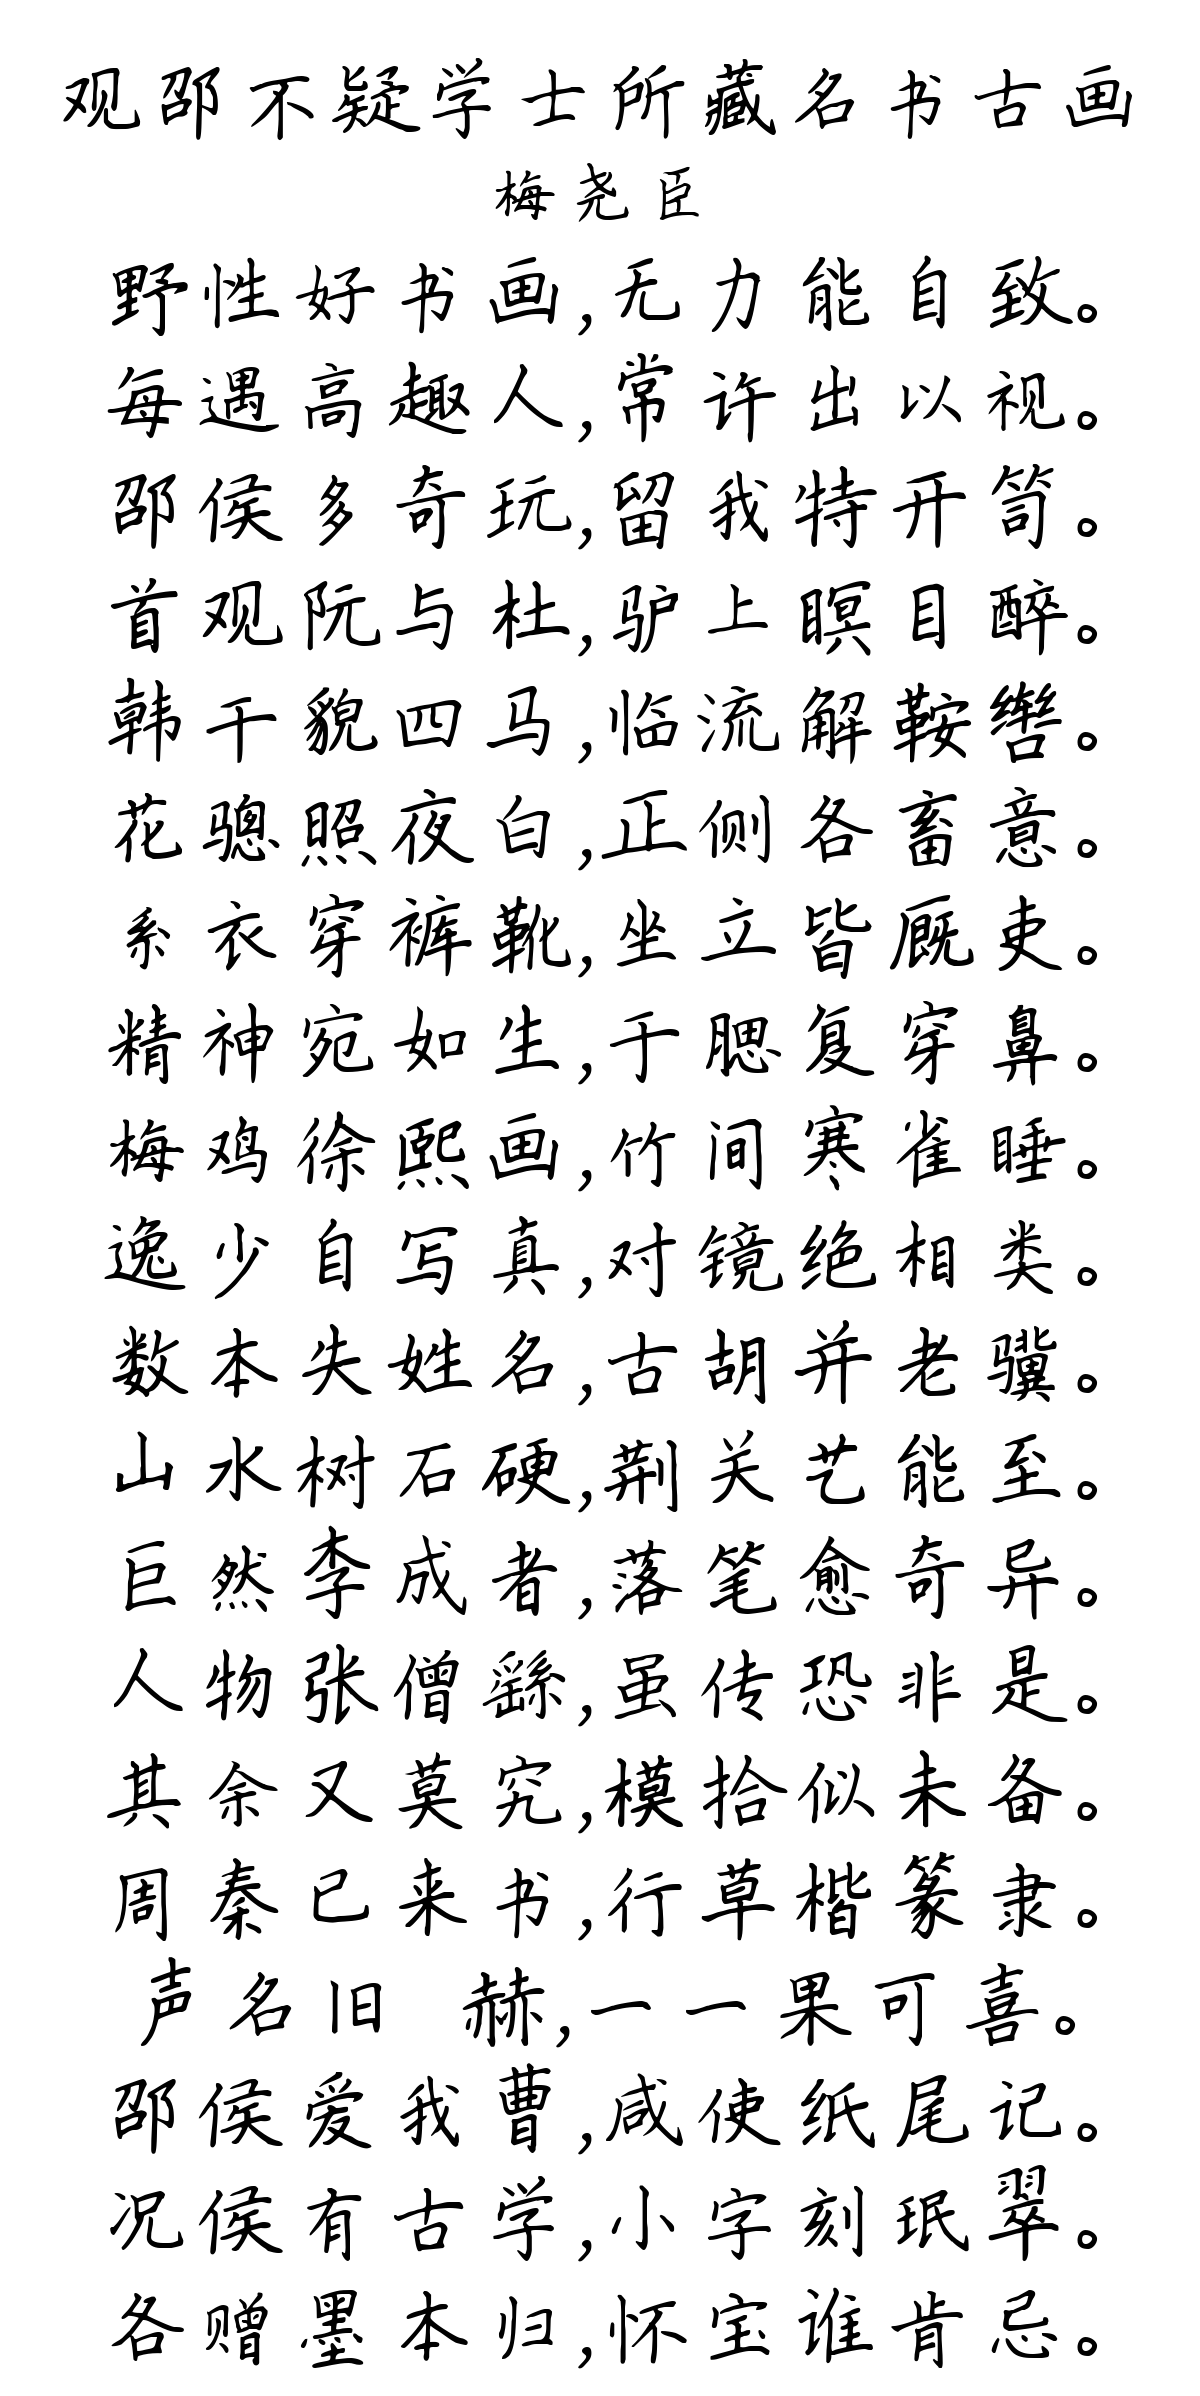 观邵不疑学士所藏名书古画
梅尧臣
野性好书画,无力能自致。
每遇高趣人,常许出以视。
邵侯多奇玩,留我特开笥。
首观阮与杜,驴上瞑目醉。
韩干貌四马,临流解鞍辔。
花骢照夜白,正侧各畜意。
系衣穿裤靴,坐立皆厩吏。
精神宛如生,于腮复穿鼻。
梅鸡徐熙画,竹间寒雀睡。
逸少自写真,对镜绝相类。
数本失姓名,古胡并老骥。
山水树石硬,荆关艺能至。
巨然李成者,落笔愈奇异。
人物张僧繇,虽传恐非是。
其余又莫究,模拾似未备。
周秦已来书,行草楷篆隶。
声名旧 赫,一一果可喜。
邵侯爱我曹,咸使纸尾记。
况侯有古学,小字刻珉翠。
各赠墨本归,怀宝谁肯忌。